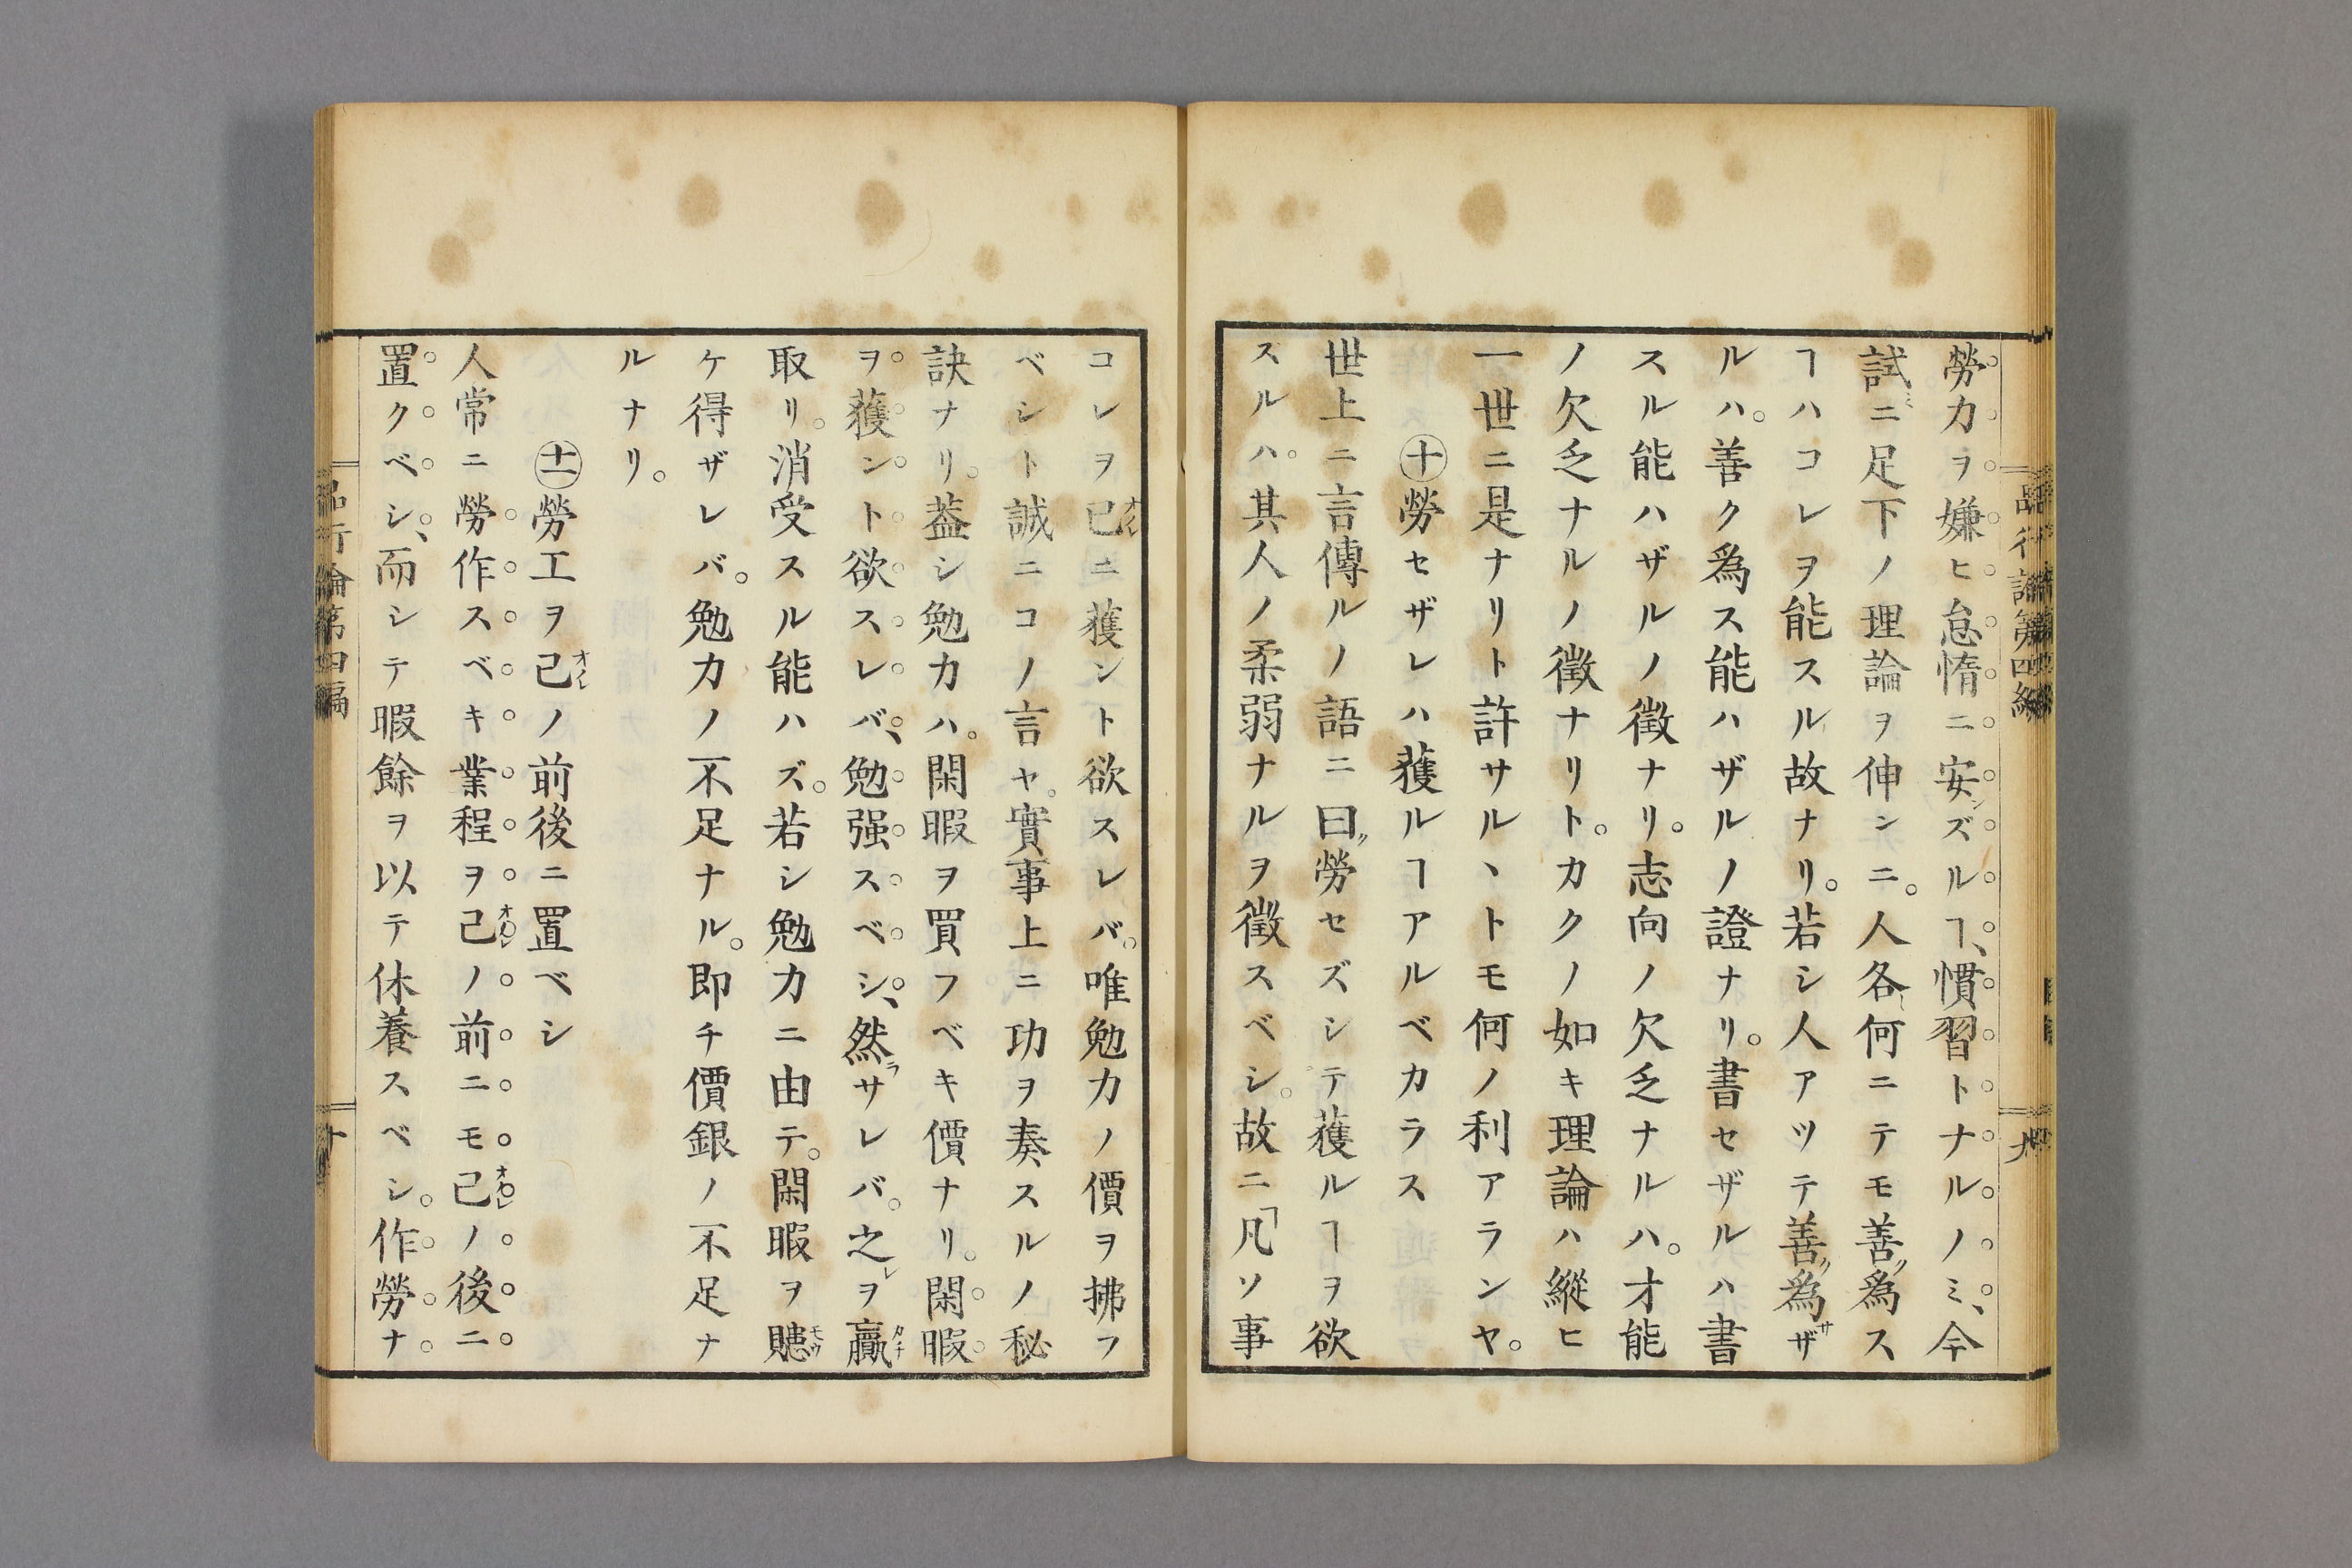 品行論第四編
九
勞力ヲ嫌ヒ怠惰ニ安ズルヿ、慣習トナルノミ、今
試ニ足下ノ理論ヲ伸ンニ。人各何ニテモ善爲ス
ヿハコレヲ能スル故ナリ。若シ人アツテ善爲ザ
ルハ。善ク爲ス能ハザルノ證ナリ。書セザルハ書
スル能ハザルノ徵ナリ。志向ノ欠乏ナルハ。才能
ノ欠乏ナルノ徵ナリト。カクノ如キ理論ハ縱ヒ
一世ニ是ナリト許サルヽトモ何ノ利アランヤ。
㊉勞セザレハ獲ルヿアルベカラス
世上ニ言傳ルノ語ニ曰勞セズシテ獲ルヿヲ欲
スルハ。其人ノ柔弱ナルヲ徵スベシ。故ニ「凡ソ事
コレヲ己ニ獲ント欲スレバ。唯勉力ノ價ヲ拂フ
ベシト誠ニコノ言ヤ。實事上ニ功ヲ奏スルノ秘
訣ナリ。葢シ勉力ハ。閑暇ヲ買フベキ價ナリ。閑暇
ヲ獲ント欲スレバ、勉强スベシ、然サレバ。之ヲ贏
取リ。消受スル能ハズ。若シ勉力ニ由テ。閑暇ヲ贃
ケ得ザレバ。勉力ノ不足ナル。即チ價銀ノ不足ナ
ルナリ。
⑪勞工ヲ己ノ前後ニ置ベシ
人常ニ勞作スベキ業程ヲ己ノ前ニモ己ノ後ニ
置クベシ、而シテ暇餘ヲ以テ休養スベシ。作勞ナ
品行論第四編
十